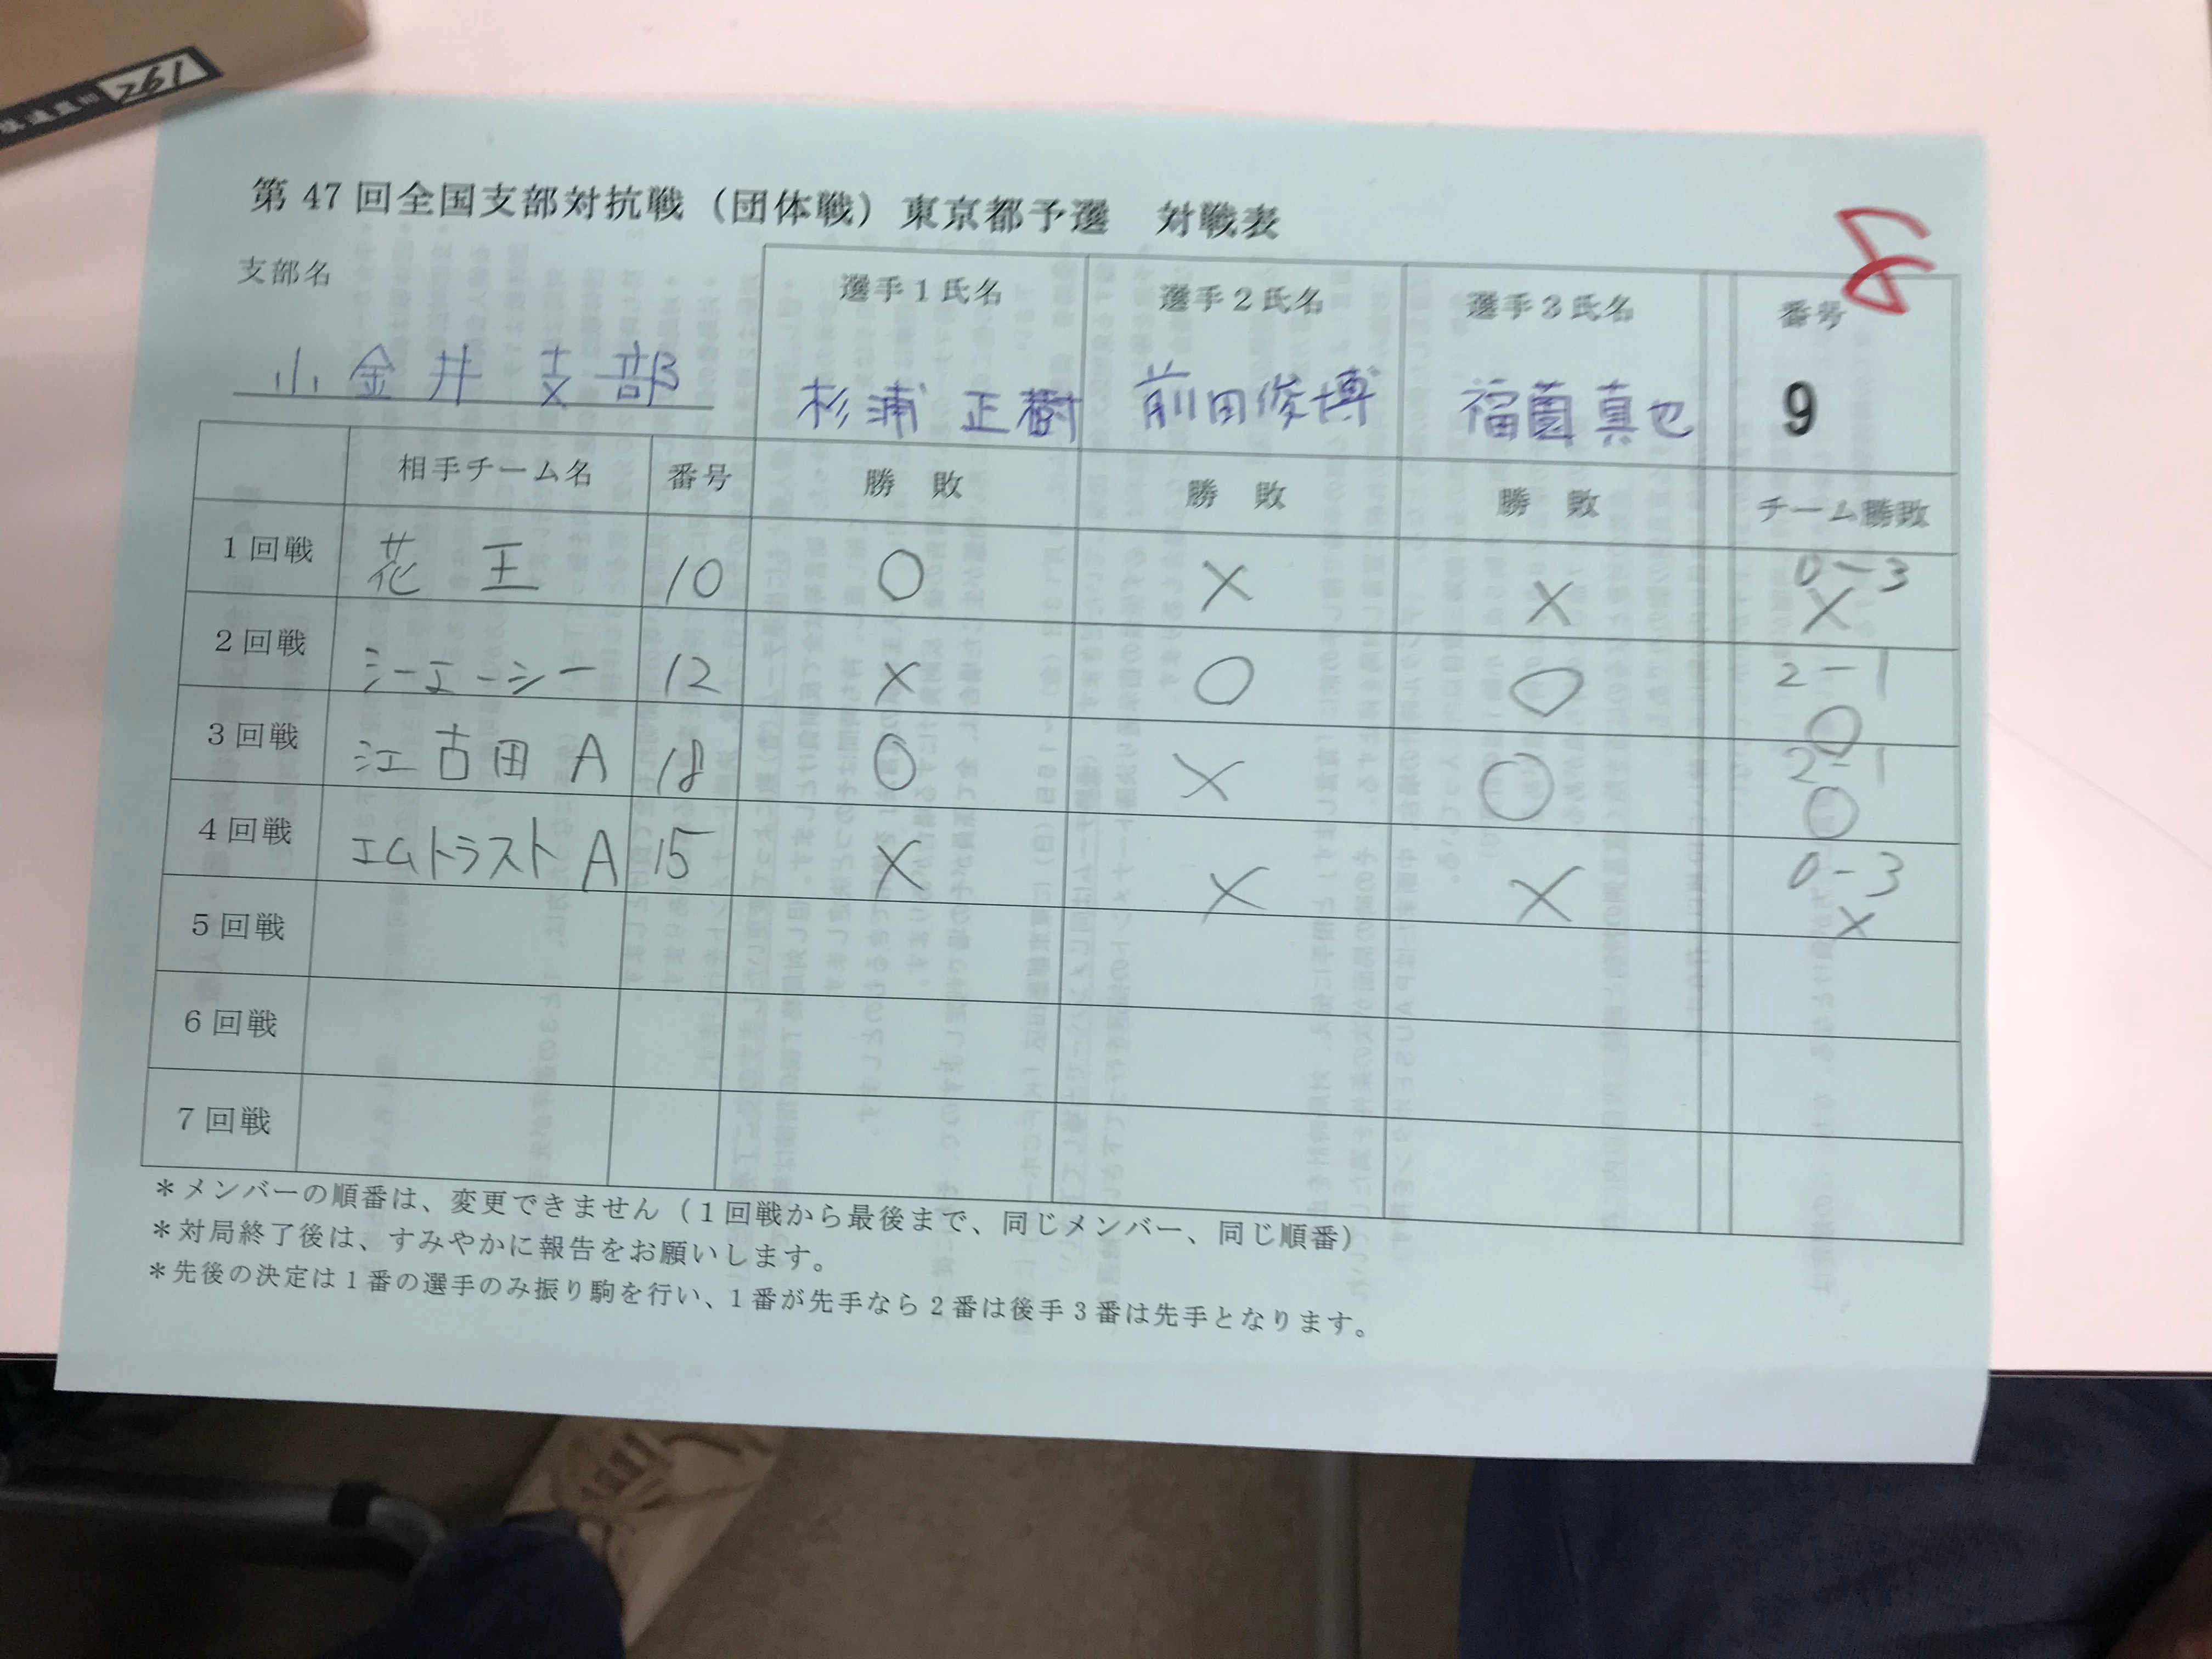 261
第47回全国支部対抗戦（団体戦）東京都予選　対戦表
8
支部名 選手1氏名 選手2氏名 選手3氏名 番号
小金井支部 杉浦 正樹 前田俊博 福薗真也 9
相手チーム名 番号 勝 敗 勝 敗 勝 敗 チーム勝敗
1回戦 花王 10 ○ × × 0-3 ×
2回戦 シーエーシー 12 × ○ ○ 2-1 ○
3回戦 江古田A 18 ○ × ○ 2-1 ○
4回戦 エムトラストA 15 × × × 0-3 ×
5回戦
6回戦
7回戦
＊メンバーの順番は、変更できません（1回戦から最後まで、同じメンバー、同じ順番）
＊対局終了後は、すみやかに報告をお願いします。
＊先後の決定は1番の選手のみ振り駒を行い、1番が先手なら2番は後手3番は先手となります。